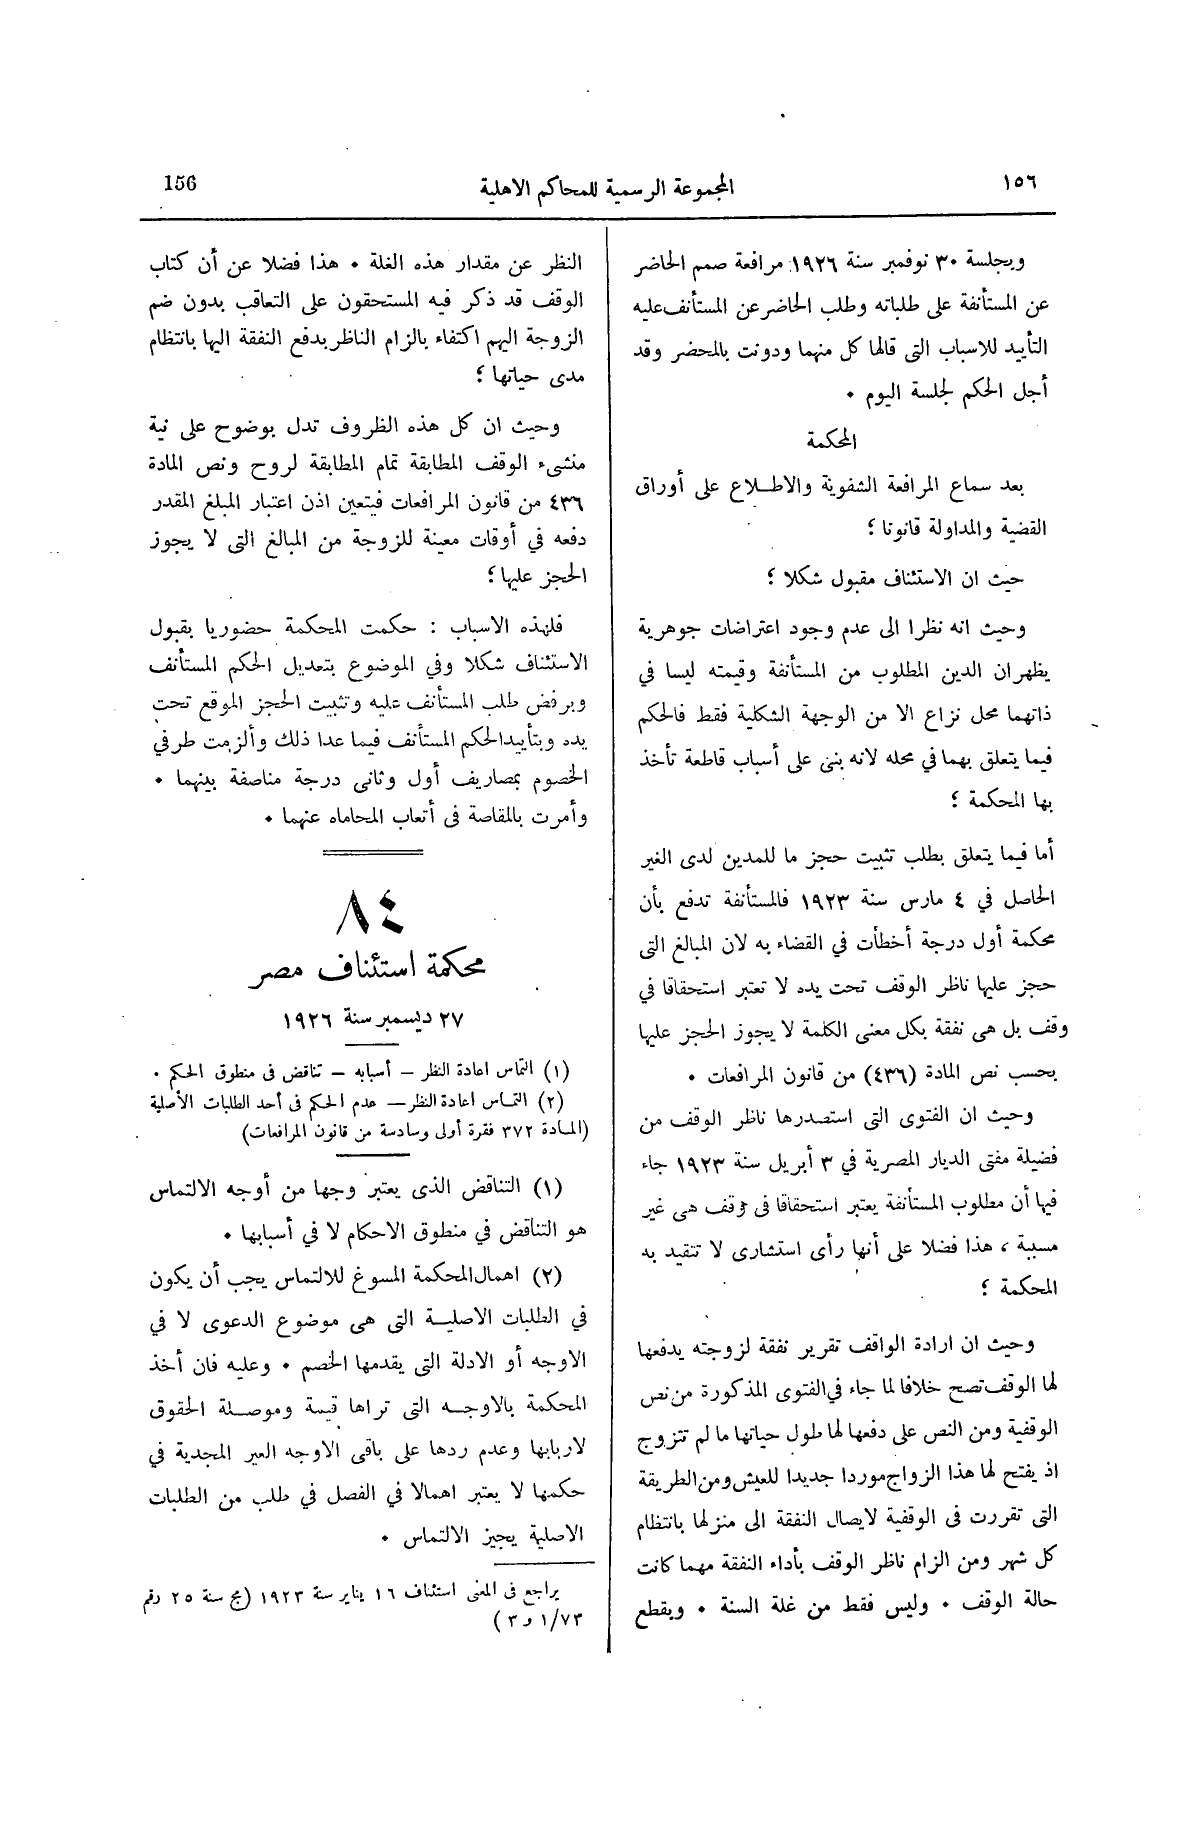 ١٥٦
المجموعة الرسمية للمحاكم الاهلية
156
وبجلسة ٣٠ نوفمبر سنة ١٩٢٦ مرافعة صمم الحاضر
عن المستأنفة على طلباته وطلب الحاضر عن المستأنف عليه
التأييد للاسباب التى قالها كل منهما ودونت بالمحضر وقد
أجل الحكم لجلسة اليوم .
المحكمة
بعد سماع المرافعة الشفوية والاطلاع على أوراق
القضية والمداولة قانونا ؛
حيث ان الاستئناف مقبول شكلا ؛
وحيث انه نظرا الى عدم وجود اعتراضات جوهرية
يظهران الدين المطلوب من المستأنفة وقيمته ليسا في
ذاتهما محل نزاع الا من الوجهة الشكلية فقط فالحكم
فيما يتعلق بهما في محله لانه بنى على أسباب قاطعة تأخذ
بها المحكمة ؛
أما فيما يتعلق بطلب تثبيت حجز ما للمدين لدى الغير
الحاصل في ٤ مارس سنة ١٩٢٣ فالمستأنفة تدفع بأن
محكمة أول درجة أخطأت في القضاء به لان المبالغ التى
حجز عليها ناظر الوقف تحت يده لا تعتبر استحقاقا في
وقف بل هى نفقة بكل معنى الكلمة لا يجوز الحجز عليها
بحسب نص المادة (٤٣٦) من قانون المرافعات .
وحيث ان الفتوى التى استصدرها ناظر الوقف من
فضيلة مفتى الديار المصرية في ٣ أبريل سنة ١٩٢٣ جاء
فيها أن مطلوب المستأنفة يعتبر استحقاقا فى وقف هى غير
مسببة ، هذا فضلا على أنها رأى استشارى لا تتقيد به
المحكمة ؛
وحيث ان ارادة الواقف تقرير نفقة لزوجته يدفعها
لها الوقف تصح خلافا لما جاء في الفتوى المذكورة من نص
الوقفية ومن النص على دفعها لها طول حياتها ما لم تتزوج
اذ يفتح لها هذا الزواج موردا جديدا للعيش ومن الطريقة
التى تقررت فى الوقفية لايصال النفقة الى منزلها بانتظام
كل شهر ومن الزام ناظر الوقف بأداء النفقة مهما كانت
حالة الوقف . وليس فقط من غلة السنة . وبقطع
النظر عن مقدار هذه الغلة . هذا فضلا عن أن كتاب
الوقف قد ذكر فيه المستحقون على التعاقب بدون ضم
الزوجة اليهم اكتفاء بالزام الناظر بدفع النفقة اليها بانتظام
مدى حياتها ؛
وحيث ان كل هذه الظروف تدل بوضوح على نية
منشىء الوقف المطابقة تمام المطابقة لروح ونص المادة
٤٣٦ من قانون المرافعات فيتعين اذن اعتبار المبلغ المقدر
دفعه في أوقات معينة للزوجة من المبالغ التى لا يجوز
الحجز عليها ؛
فلهذه الاسباب : حكمت المحكمة حضوريا بقبول
الاستئناف شكلا وفي الموضوع بتعديل الحكم المستأنف
وبرفض طلب المستأنف عليه وتثبيت الحجز الموقع تحت
يده وبتأييد الحكم المستأنف فيما عدا ذلك وألزمت طرفي
الخصوم بمصاريف أول وثانى درجة مناصفة بينهما .
وأمرت بالمقاصة فى أتعاب المحاماه عنهما .
٨٤
محكمة استئناف مصر
٢٧ ديسمبر سنة ١٩٢٦
(١) التماس اعادة النظر – أسبابه – تناقض فى منطوق الحكم .
(٢) التماس اعادة النظر – عدم الحكم فى أحد الطلبات الأصلية
(المادة ٣٧٢ فقرة أولى وسادسة من قانون المرافعات)
(١) التناقض الذى يعتبر وجها من أوجه الالتماس
هو التناقض في منطوق الاحكام لا في أسبابها .
(٢) اهمال المحكمة المسوغ للالتماس يجب أن يكون
في الطلبات الاصلية التى هى موضوع الدعوى لا في
الاوجه أو الادلة التى يقدمها الخصم . وعليه فان أخذ
المحكمة بالاوجه التى تراها قيمة وموصلة الحقوق
لاربابها وعدم ردها على باقى الاوجه الغير المجدية في
حكمها لا يعتبر اهمالا في الفصل في طلب من الطلبات
الاصلية يجيز الالتماس .
يراجع فى المعنى استئناف ١٦ يناير سنة ١٩٢٣ (مج سنة ٢٥ رقم
١/٧٣ و ٣)